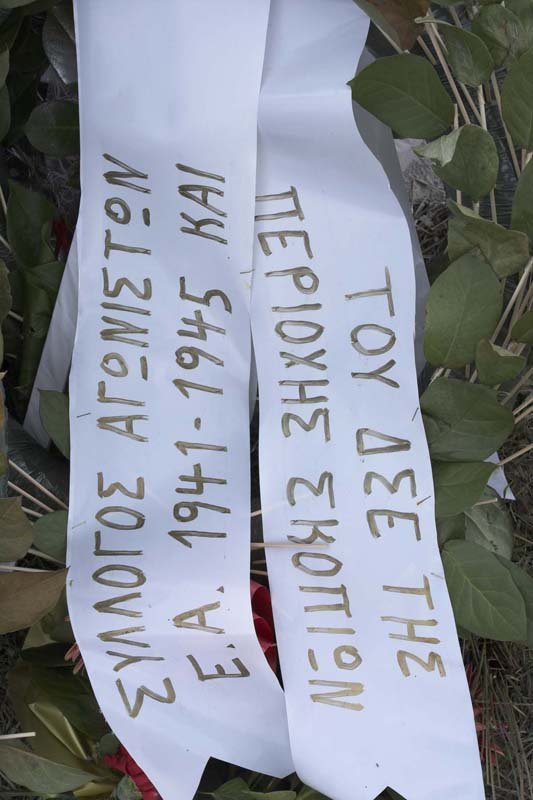 ΣΥΛΛΟΓΟΣ ΑΓΩΝΙΣΤΩΝ
Ε.Α. 1941-1945 ΚΑΙ
ΤΟΥ ΔΣΕ ΤΗΣ
ΠΕΡΙΟΧΗΣ ΣΚΟΠΙΩΝ